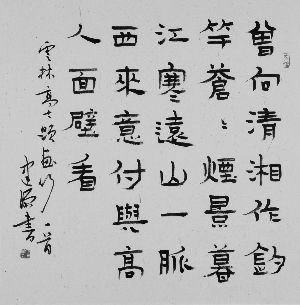 曾向清湘作釣
竿蒼〻煙景暮
江寒遠山一脈
西來意付與高
人面壁看
雲林高士題畫竹一首
書